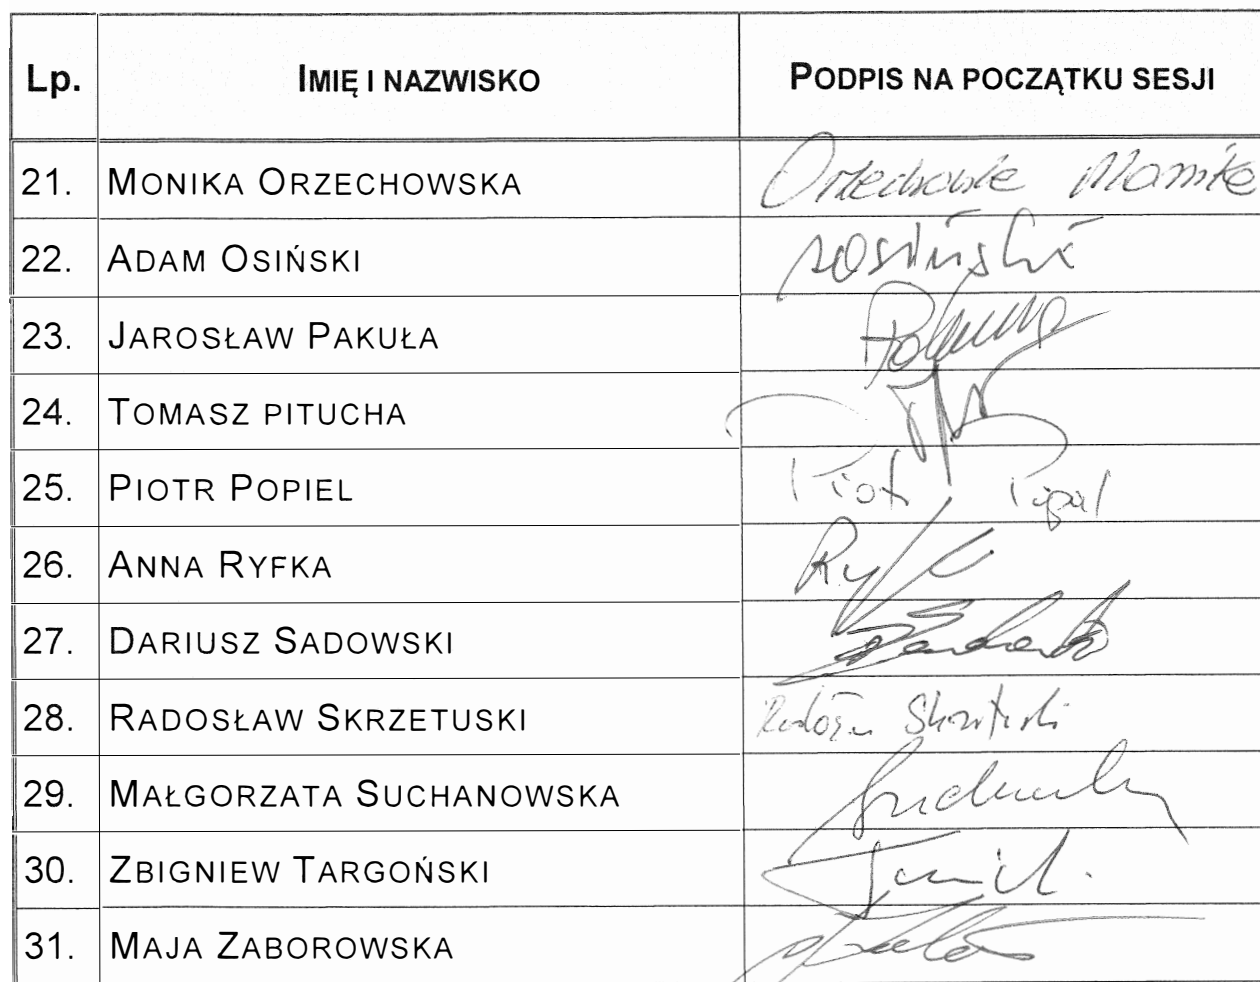 Lp. IMIĘ I NAZWISKO PODPIS NA POCZĄTKU SESJI
21. MONIKA ORZECHOWSKA Orzechowska Monika
22. ADAM OSIŃSKI AOsiński
23. JAROSŁAW PAKUŁA
24. TOMASZ PITUCHA
25. PIOTR POPIEL Piotr Popiel
26. ANNA RYFKA
27. DARIUSZ SADOWSKI
28. RADOSŁAW SKRZETUSKI Radosław Skrzetuski
29. MAŁGORZATA SUCHANOWSKA
30. ZBIGNIEW TARGOŃSKI
31. MAJA ZABOROWSKA